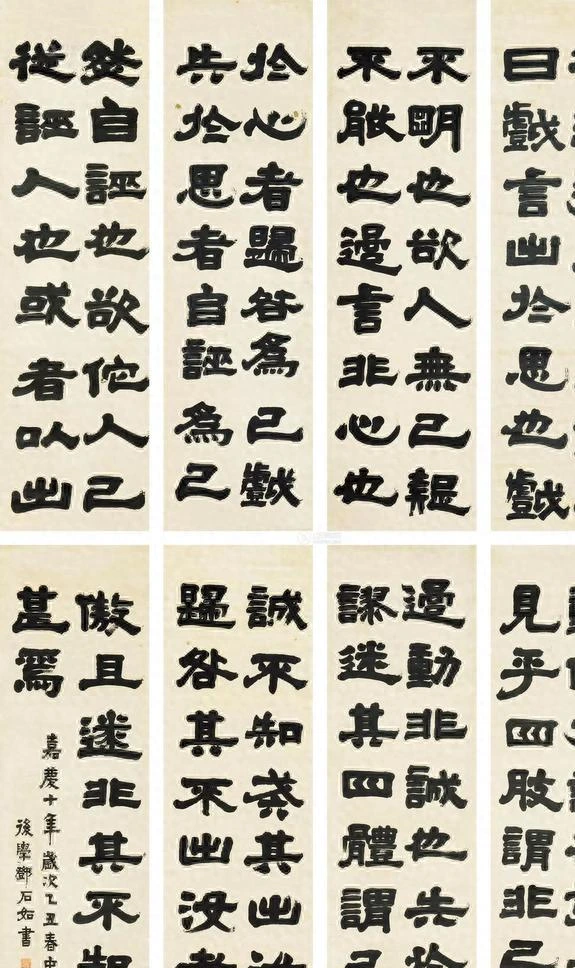 曰戲言出於思也戲
不明也欲人無己疑
不能也過言非心也
於心者歸咎爲己戲
失於思者自誣爲己
然自誣也欲佗人己
從誣人也或者以出
見乎四肢謂非己
過動非誠也失於
繆迷其四體謂己
誠不知戒其出汝
歸咎其不出汝者
傲且遂非其不知
甚焉
嘉慶十年歲次乙丑春中
後學鄧石如書